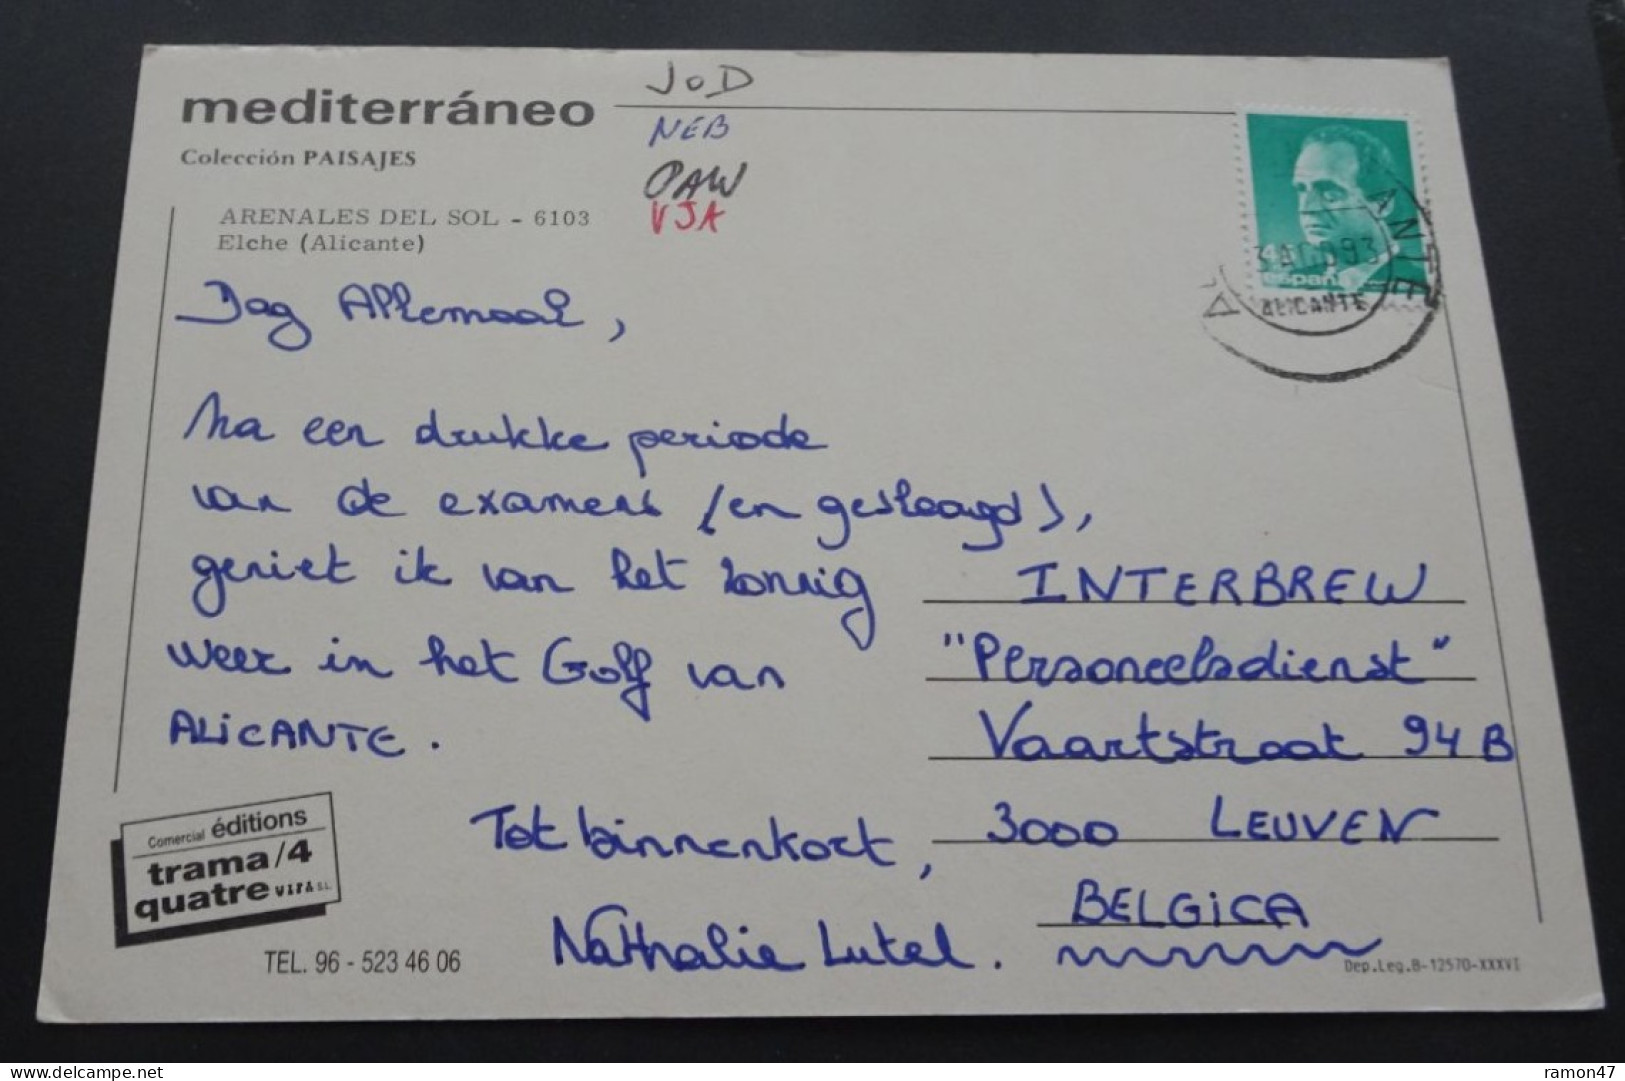 mediterráneo
Colección PAISAJES
ARENALES DEL SOL - 6103
Elche (Alicante)
JOD
NEB
PAW
VJA
españa
3 AGO 93
ALICANTE
Dag Allemaal,
Na een drukke periode
van de examens (en geslaagd),
geniet ik van het zonnig
weer in het Golf van
ALiCANTE.
Tot binnenkort,
Nathalie Lutel.
INTERBREW
"Personeelsdienst"
Vaartstraat 94 B
3000 LEUVEN
BELGiCA
Comercial éditions
trama/4
quatre VIFA S.L.
TEL. 96 - 523 46 06
Dep.Leg.B-12570-XXXVI
delcampe.net
ramon47